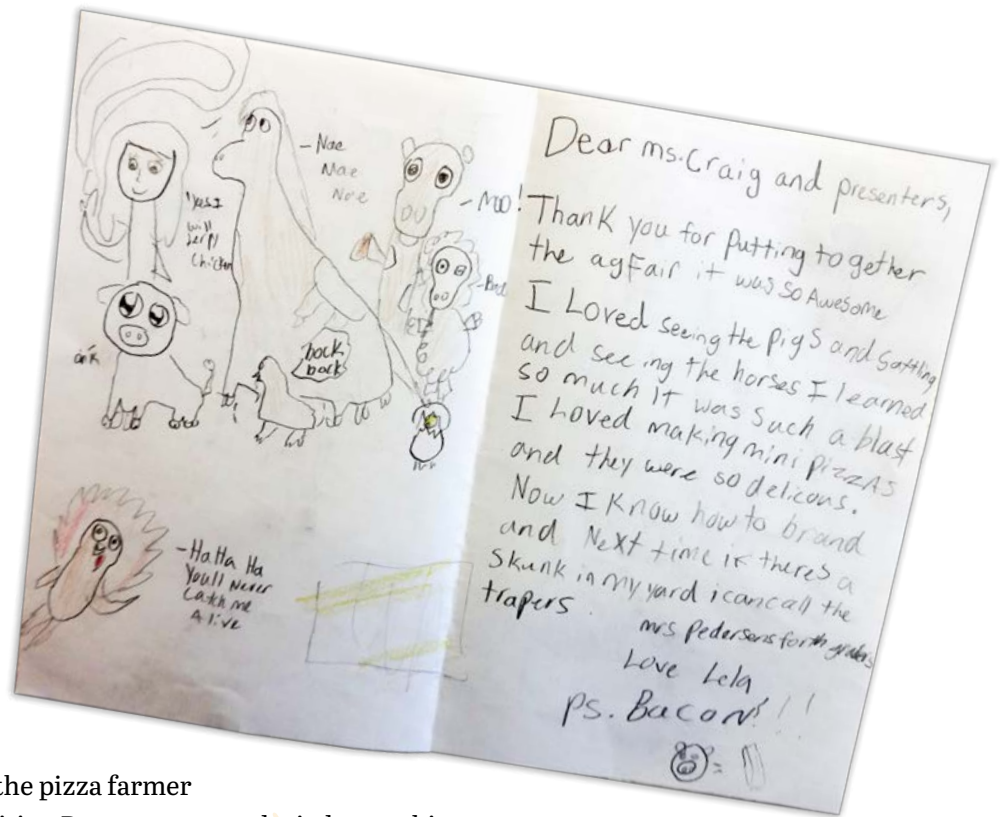 - Nae
Mae
Nore
- MOO!
will
chicken
oink
bock
bock
- HaHa Ha
Youll Never
Catch me
Alive
Dear ms. Craig and presenters,
Thank you for putting together
the agFair it was so Awesome
I Loved seeing the pigs and
and seeing the horses I learned
so much It was such a blast
I Loved making mini pizzAs
and they were so delicous.
Now I Know how to brand
and Next time if theres a
skunk in my yard i can call the
trapers.
mrs Pedersens forth graders
Love Lela
Ps. Bacon!!!
the pizza farmer